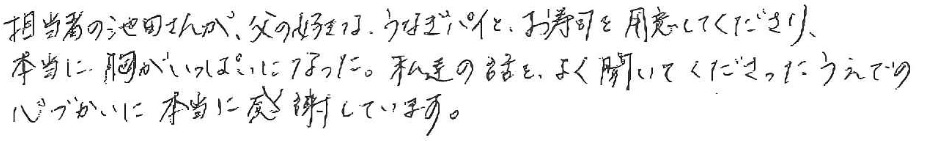 担当者の池田さんが、父の好きな、うなぎパイと、お寿司を用意してくださり、
本当に胸がいっぱいになった。私達の話を、よく聞いてくださったうえでの
心づかいに本当に感謝しています。